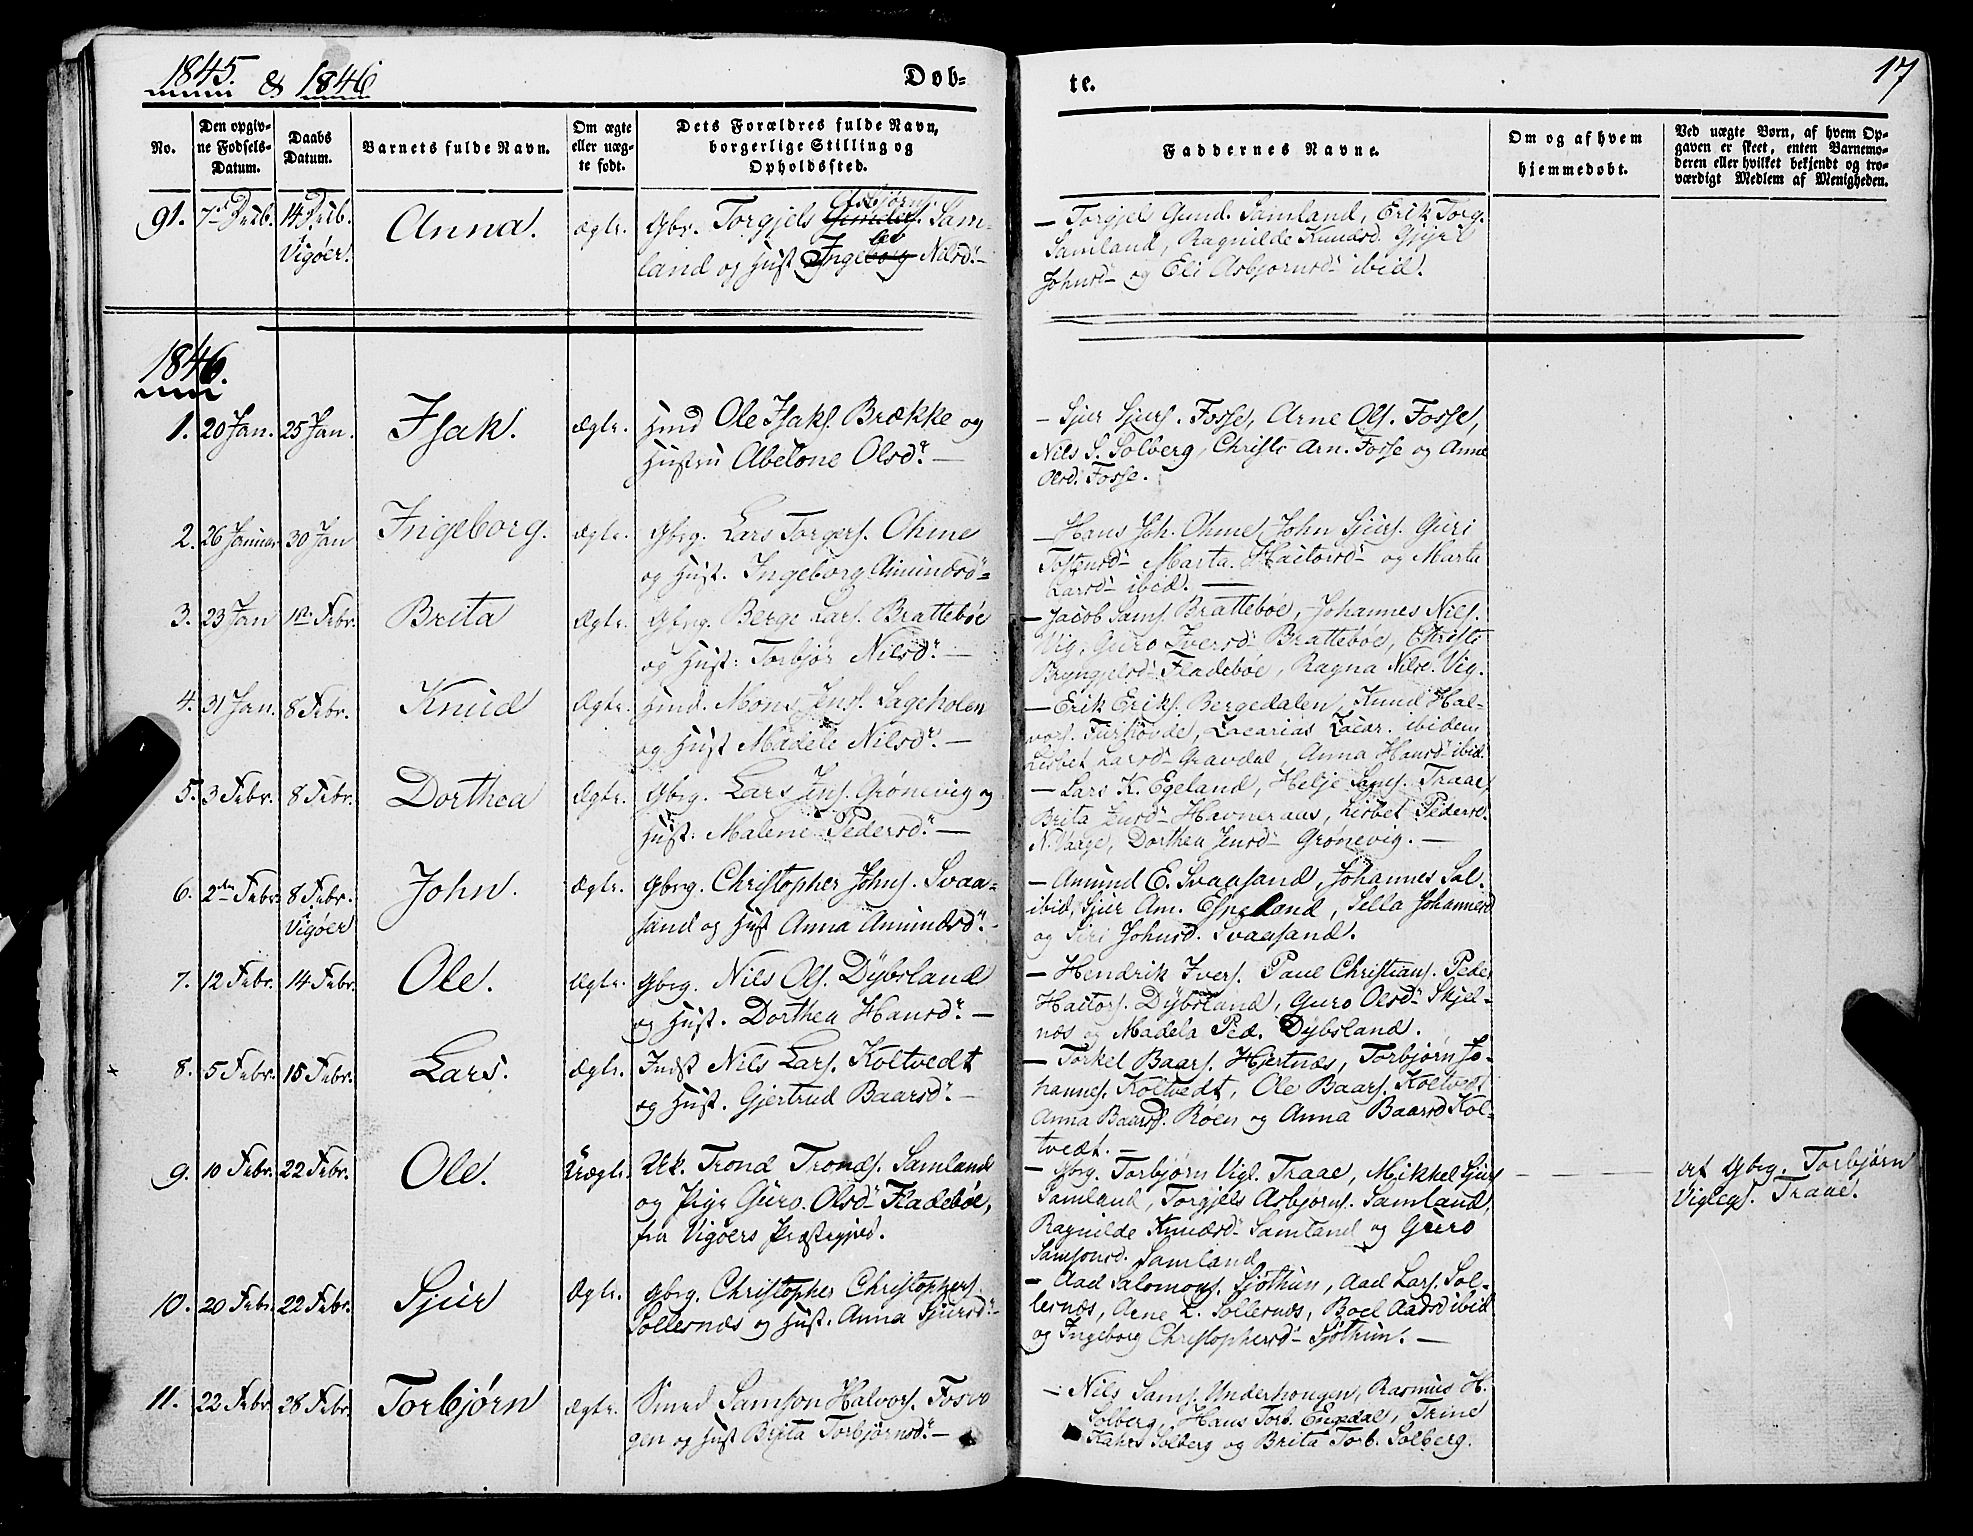 1845. & 1846
Døb-
te.
17
No.
Den opgiv-
ne Fødsels-
Datum.
Daabs
Datum.
Barnets fulde Navn.
Om ægte
eller uæg-
te født.
Dets Forældres fulde Navn,
borgerlige Stilling og
Opholdssted.
Faddernes Navne.
Om og af hvem
hjemmedøbt.
Ved uægte Børn, af hvem Op-
gaven er skeet, enten Barnemo-
deren eller hvilket bekjendt og tro-
værdigt Medlem af Menigheden.
91. 7de Dcb. 14 Dcb. Anna. ægte. Gbr. Torgjels Asbjørns. Sam-
Vigøer. land og Hust Ingeborg Nilsd. –
– Torgjel Gund. Samland, Erik Torg.
Samland, Ragnilde Knudsd. Gjeril
Johnsd – og Eli Asbjørnsd – ibid.
1846.
1. 20 Jan. 25 Jan. Isak. Ægte. Hmd Ole Isaks. Brække og
Hustru Abelone Olsd. –
– Sjur Sjurs. Fosse, Arne Ols. Fosse,
Nils S. Solberg, Christi Arn. Fosse og Anna
Olsd. Fosse.
2. 26 Januar 30 Jan Ingeborg. Ægte. Gbrg. Lars Torgers. Ohme
og Hust. Ingeborg Amundsd –
– Hans Joh. Ohme, John Sjurs. Guri
Tostensd – Marta Haitorsd – og Marta
Larsd – ibid. –
3. 23 Jan 1ste Febr. Brita Ægte. Gbrg. Berge Lars. Brattebøe
og Hust: Torbjør Nilsd. –
– Jacob Sams. Brattebøe, Johannes Nils.
Vig, Guro Iversd – Brattebøe, Christi
Bryngjelsd – Fladebøe, Ragna Nilsd. Vig.
4. 31 Jan. 8 Febr. Knud Ægte. Hmd. Mons Jens. Lageholen
og Hust Madele Nilsd. –
– Erik Eriks. Bergedalen, Knud Hal-
vors. Furhovde, Zacarias Zacar. ibidem
Lisbet Larsd – Gravdal, Anna Hansd – ibid.
5. 3 Febr. 8 Febr. Dorthea Ægte. Gbrg. Lars Jens. Grønevig og
Hust: Malene Pedersd. –
– Lars K. Egeland, Helje Sams. Traae
Brita Jensd – Havneraas, Lisbet Pedersd.
N. Vaage, Dorthea Jensd – Grønevig. –
6. 2den Febr. 8 Febr. John. Ægte. Gbrg. Christopher Johns. Svaa-
Vigøer sand og Hust Anna Amundsd. –
– Amund E. Svaasand, Johannes Sal.
ibid, Sjur Am. Espeland, Sella Johannesd
og Siri Johnsd. Svaasand.
7. 12 Febr. 14 Febr. Ole. Ægte. Gbrg. Nils Ols. Dybsland
og Hust. Dorthea Hansd. –
– Hendrik Ivers. Paul Christians. Peder
Haitors. Dybsland, Guro Olsd – Skjel-
næs og Madela Ped. Dybsland.
8. 5 Febr. 15 Febr. Lars. Ægte. Indst Nils Lars. Koltvedt
og Hust. Gjertrud Baarsd. –
– Torkel Baars. Hjertnæs, Torbjørn Jo-
hannes. Koltvedt, Ole Baars. Koltvedt
Anna Baarsd. Røen og Anna Baarsd Kol-
tvedt. –
9. 10 Febr. 22 Febr. Ole. Uægte. Uk. Trond Tronds. Samland
og Pige Guro. Olsd – Fladebøe,
fra Vigøers Præstegjeld.
– Gbrg. Torbjørn Vigl. Traae, Mikkel Sjurs
Samland, Torgjels Asbjørns. Samland,
Ragnilde Knudsd – Samland og Guro
Samsonsd. Samland
af Gbrg. Torbjørn
Viglegs. Traae.
10. 20 Febr. 22 Febr. Sjur Ægte. Gbrg. Christopher Christophers.
Sollesnæs og Hust. Anna Sjursd. –
– Aad Salomons. Sjothun, Aad Lars. Sol-
lesnæs, Arne L. Sollesnæs, Boel Aadsd ibid
og Ingeborg Christophersd – Sjothun. –
11. 22 Febr. 28 Febr. Torbjørn Ægte. Smed Samson Halvors. Fosvo
gen og Hust Brita Torbjørnsd. –
– Nils Sams. Underhougen, Rasmus H.
Solberg, Hans Torb. Engedal, Trine
Kahrs Solberg og Brita Torb. Solberg.